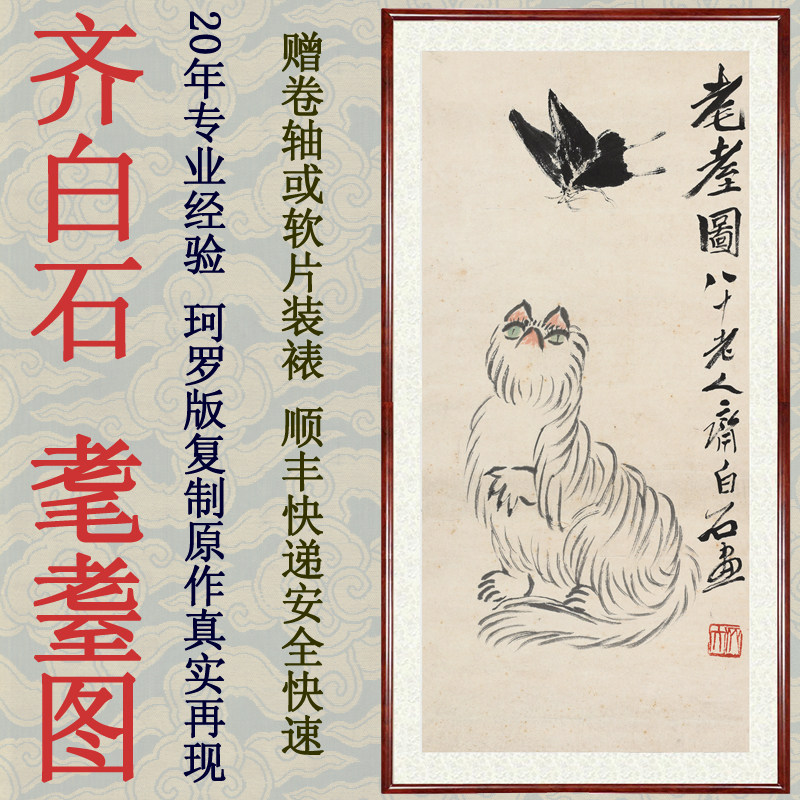 齐白石 耄耋图
20年专业经验 珂罗版复制原作真实再现
赠卷轴或软片装裱 顺丰快递安全快速
耄耋圖八十老人齊白石畫